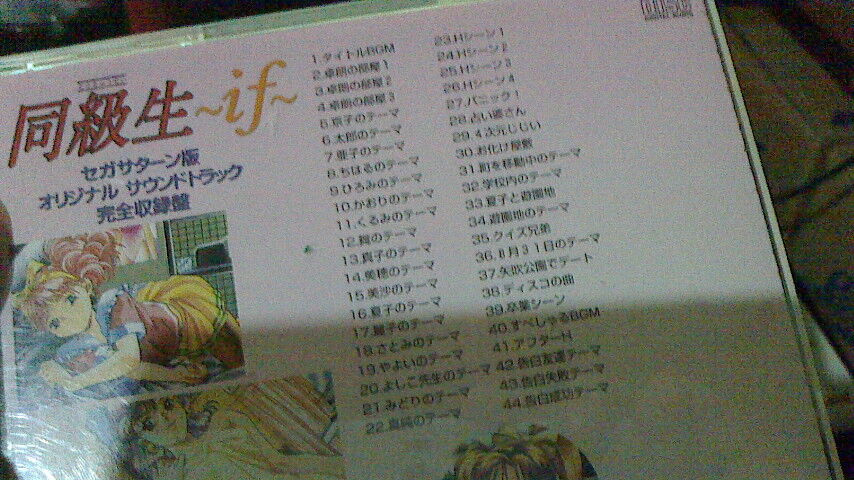 同級生
~if~
セガサターン版
オリジナル サウンドトラック
完全収録盤
1.タイトルBGM
2.卓朗の部屋1
3.卓朗の部屋2
4.卓朗の部屋3
5.京子のテーマ
6.太郎のテーマ
7.亜子のテーマ
8.ちはるのテーマ
9.ひろみのテーマ
10.かおりのテーマ
11.くるみのテーマ
12.舞のテーマ
13.真子のテーマ
14.美穂のテーマ
15.美沙のテーマ
16.夏子のテーマ
17.麗子のテーマ
18.さとみのテーマ
19.やよいのテーマ
20.よしこ先生のテーマ
21.みどりのテーマ
22.真純のテーマ
23.Hシーン1
24.Hシーン2
25.Hシーン3
26.Hシーン4
27.パニック!
28.占い婆さん
29.4次元じじい
30.お化け屋敷
31.町を移動中のテーマ
32.学校内のテーマ
33.夏子と遊園地
34.遊園地のテーマ
35.クイズ兄弟
36.8月31日のテーマ
37.矢吹公園でデート
38.ディスコの曲
39.卒業シーン
40.すぺしゃるBGM
41.アフターH
42.告白友達テーマ
43.告白失敗テーマ
44.告白成功テーマ